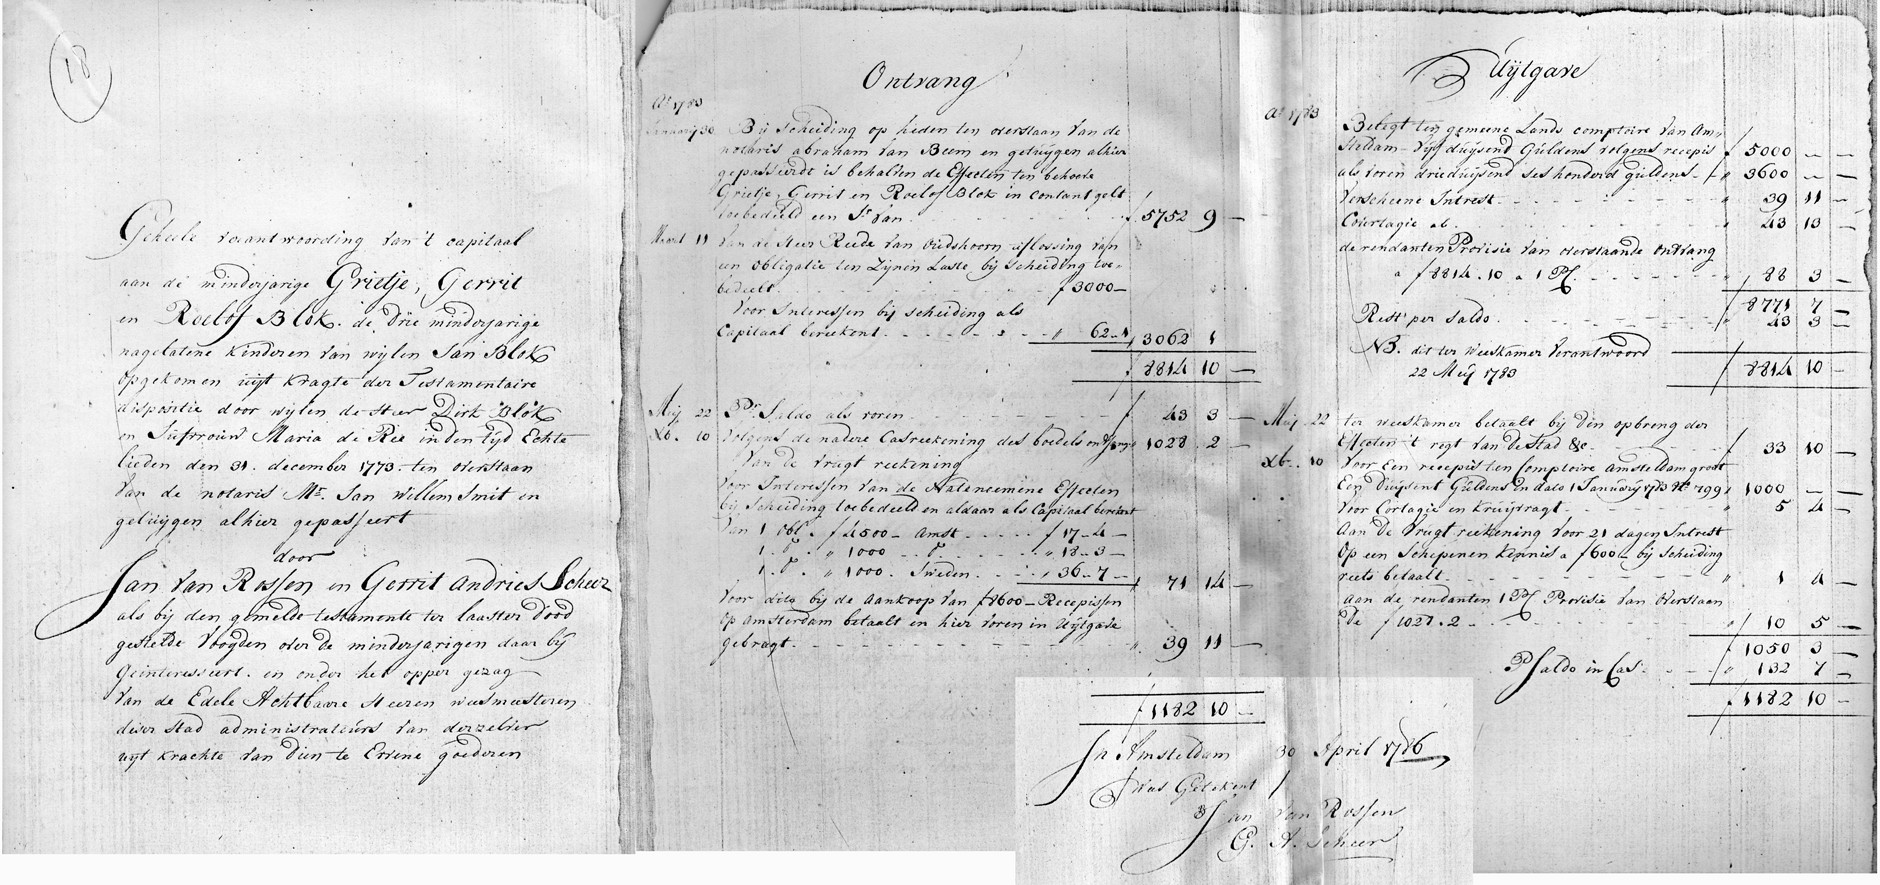 18
Geheele verantwoording van 't capitaal
aan de minderjarige Grietje, Gerrit
en Roelof Blok. de drie minderjarige
nagelatene kinderen van wijlen Jan Blok
opgekomen uijt kragte der Testamentaire
dispositie door wijlen de Heer Dirk Blok
en Jufrouw Maria de Ree in den tijd Echte
lieden den 31. december 1773 ten overstaan
van de notaris Mr. Jan Willem Smit en
getuijgen alhier gepasseert
door
Jan van Rossen en Gerrit Andries Scheer
als bij den gemelde testamente ter laaster dood
gestelde voogden over de minderjarigen daar bij
Geinteresseert. en onder het opper gezag
van de Edele Achtbaare Heeren weesmeesteren
deser stad administrateurs van derzelver
uijt krachte van dien te Ervene goederen
Ontvang
Ao 1783
Januarij 30 Bij scheiding op heden ten overstaan van de
notaris abraham van Beem en getuijgen alhier
gepasseerdt is behalven de Effecten ten behoeve
Grietje, Gerrit en Roelof Blok in contant gelt
toebedeeld een Sr van f 5752 9 —
Maart 11 Van de Heer Reede van oudshoorn aflossing van
een obligatie ten Zijnen Laste bij scheiding toe-
bedeelt f 3000 —
Voor Interessen bij scheiding als
Capitaal berekent " 62 - 1 " 3062 1
f 8814 10 —
Meij 22 Pr Saldo als voren f 43 3 —
Xb. 10 volgens de nadere Casreekening des boedels ontfange " 1028 . 2 —
Van de vrugt reekening
voor Interessen van de Natenoemene Effecten
bij scheiding toebedeeld en aldaar als Capitaal berekent
Van 1 obl. f 4500 - Amst f 17 - 4 —
1 . do . " 1000 . do " 18 - 3 —
1 . do . " 1000 . Sweden " 36 - 7 — " 71 14 —
Voor dito bij de Aankoop van f 8600 - Recepissen
op amsterdam betaalt en hier voren in uijtgave
gebragt " 39 11 —
f 1182 10 —
Uijtgave
Ao 1783
Belegt ten gemeene Lands comptoire van Am-
steldam - Vijf duijsend Guldens volgens recepis f 5000 — —
als voren drieduijsend ses honderd guldens " 3600 — —
Verscheene Intrest " 39 11 —
Courtagie ab. " 43 13 —
de rendanten Provisie van overstaande ontvang
a f 8814 . 10 a 1 PC " 88 3 —
f 8771 7 —
Rest per Saldo " 43 3 —
NB. dit ter weeskamer verantwoord
22 Meij 1783 f 8814 10 —
Meij 22 ter weeskamer betaalt bij den opbreng der
Effecten 't regt van de stad &c. f 33 10 —
Xb. 10 Voor een recepis ten Comptoire Amsteldam groot
Een Duijsent Guldens in dato 1 Januarij 1783 No 799 " 1000 — —
voor Cortagie en kruijvragt " 5 4 —
Aan de Vrugt reekening voor 21 dagen Intrest
op een schepenen kennis a f 600 - bij scheiding
reets betaalt " 1 4 —
aan de rendanten 1 PC Provisie van overstaan
de f 1027 . 2 " 10 5 —
f 1050 3 —
P Saldo in Cas. " 132 7 —
f 1182 10 —
In Amsteldam 30 April 1786
Was Getekent /
Jan van Rossen
G. A. Scheer